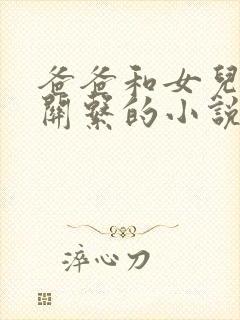 爸爸和女兒
關繫的小說
淬心刀